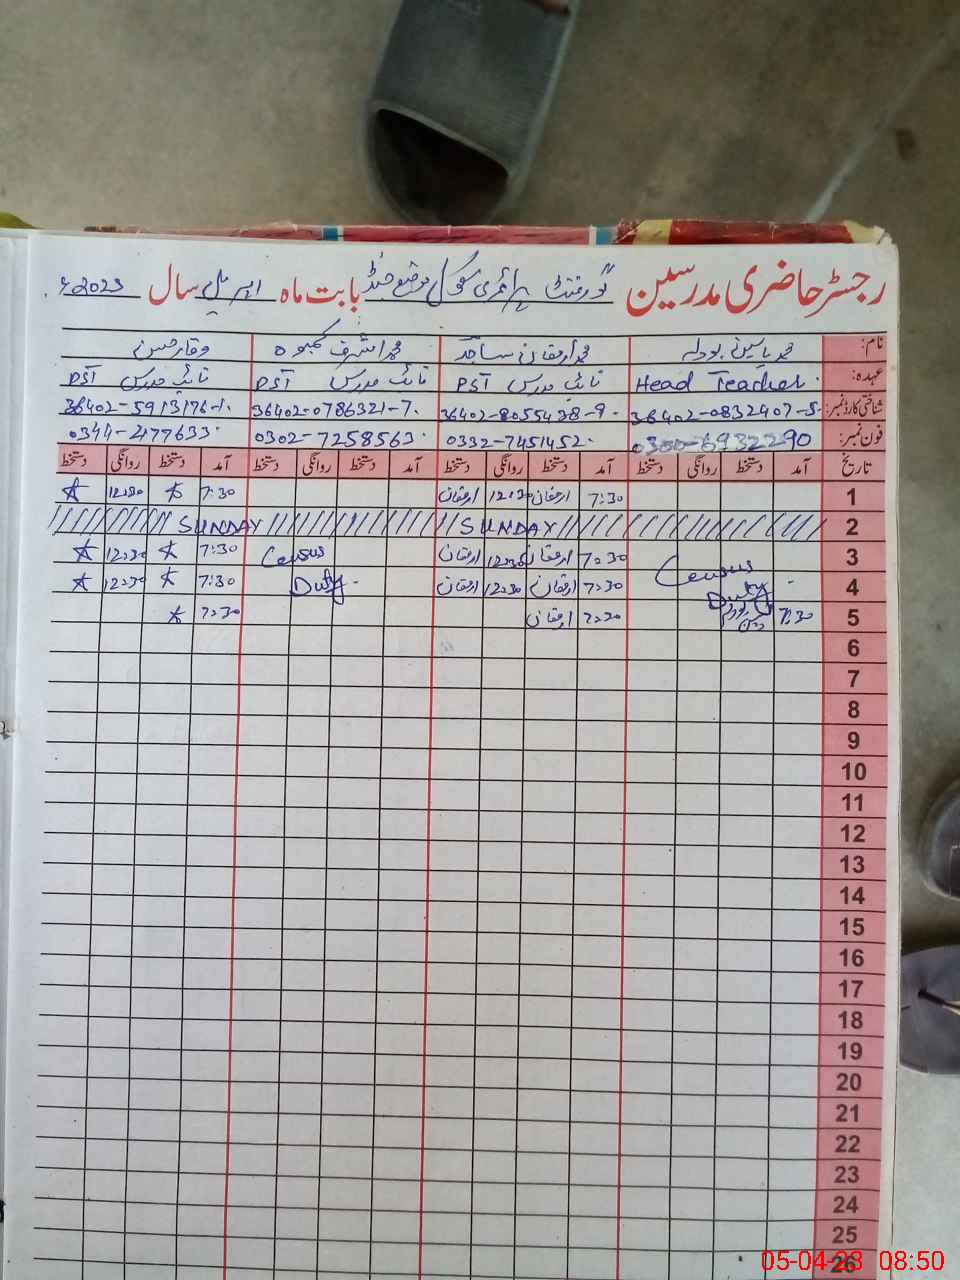 رجسٹر حاضری مدرسین گورنمنٹ پرائمری سکول موضع جنڈ بابت ماہ اپریل سال 2023ء
نام: محمد یاسین بودلہ محمد ارمغان ساجد محمد اشرف کمبوہ وقار حسن
عہدہ: Head Teacher. نائب مدرس PST نائب مدرس PST نائب مدرس PST
شناختی کارڈ نمبر: 36402-0832407-5 36402-8055438-9 36402-0786321-7 36402-5913176-1
فون نمبر: 0300-6932290 0332-7451452 0302-7258563 0344-2177633
تاریخ آمد دستخط روانگی دستخط آمد دستخط روانگی دستخط آمد دستخط روانگی دستخط آمد دستخط روانگی دستخط
1 7:30 ارمغان 12:30 ارمغان 7:30 12:30
2 SUNDAY SUNDAY
3 Census 7:30 ارمغان 12:30 ارمغان Census 7:30 12:30
4 Duty 7:30 ارمغان 12:30 ارمغان Duty 7:30 12:30
5 7:30 7:30 ارمغان 7:30
6
7
8
9
10
11
12
13
14
15
16
17
18
19
20
21
22
23
24
25
26
05-04-23 08:50